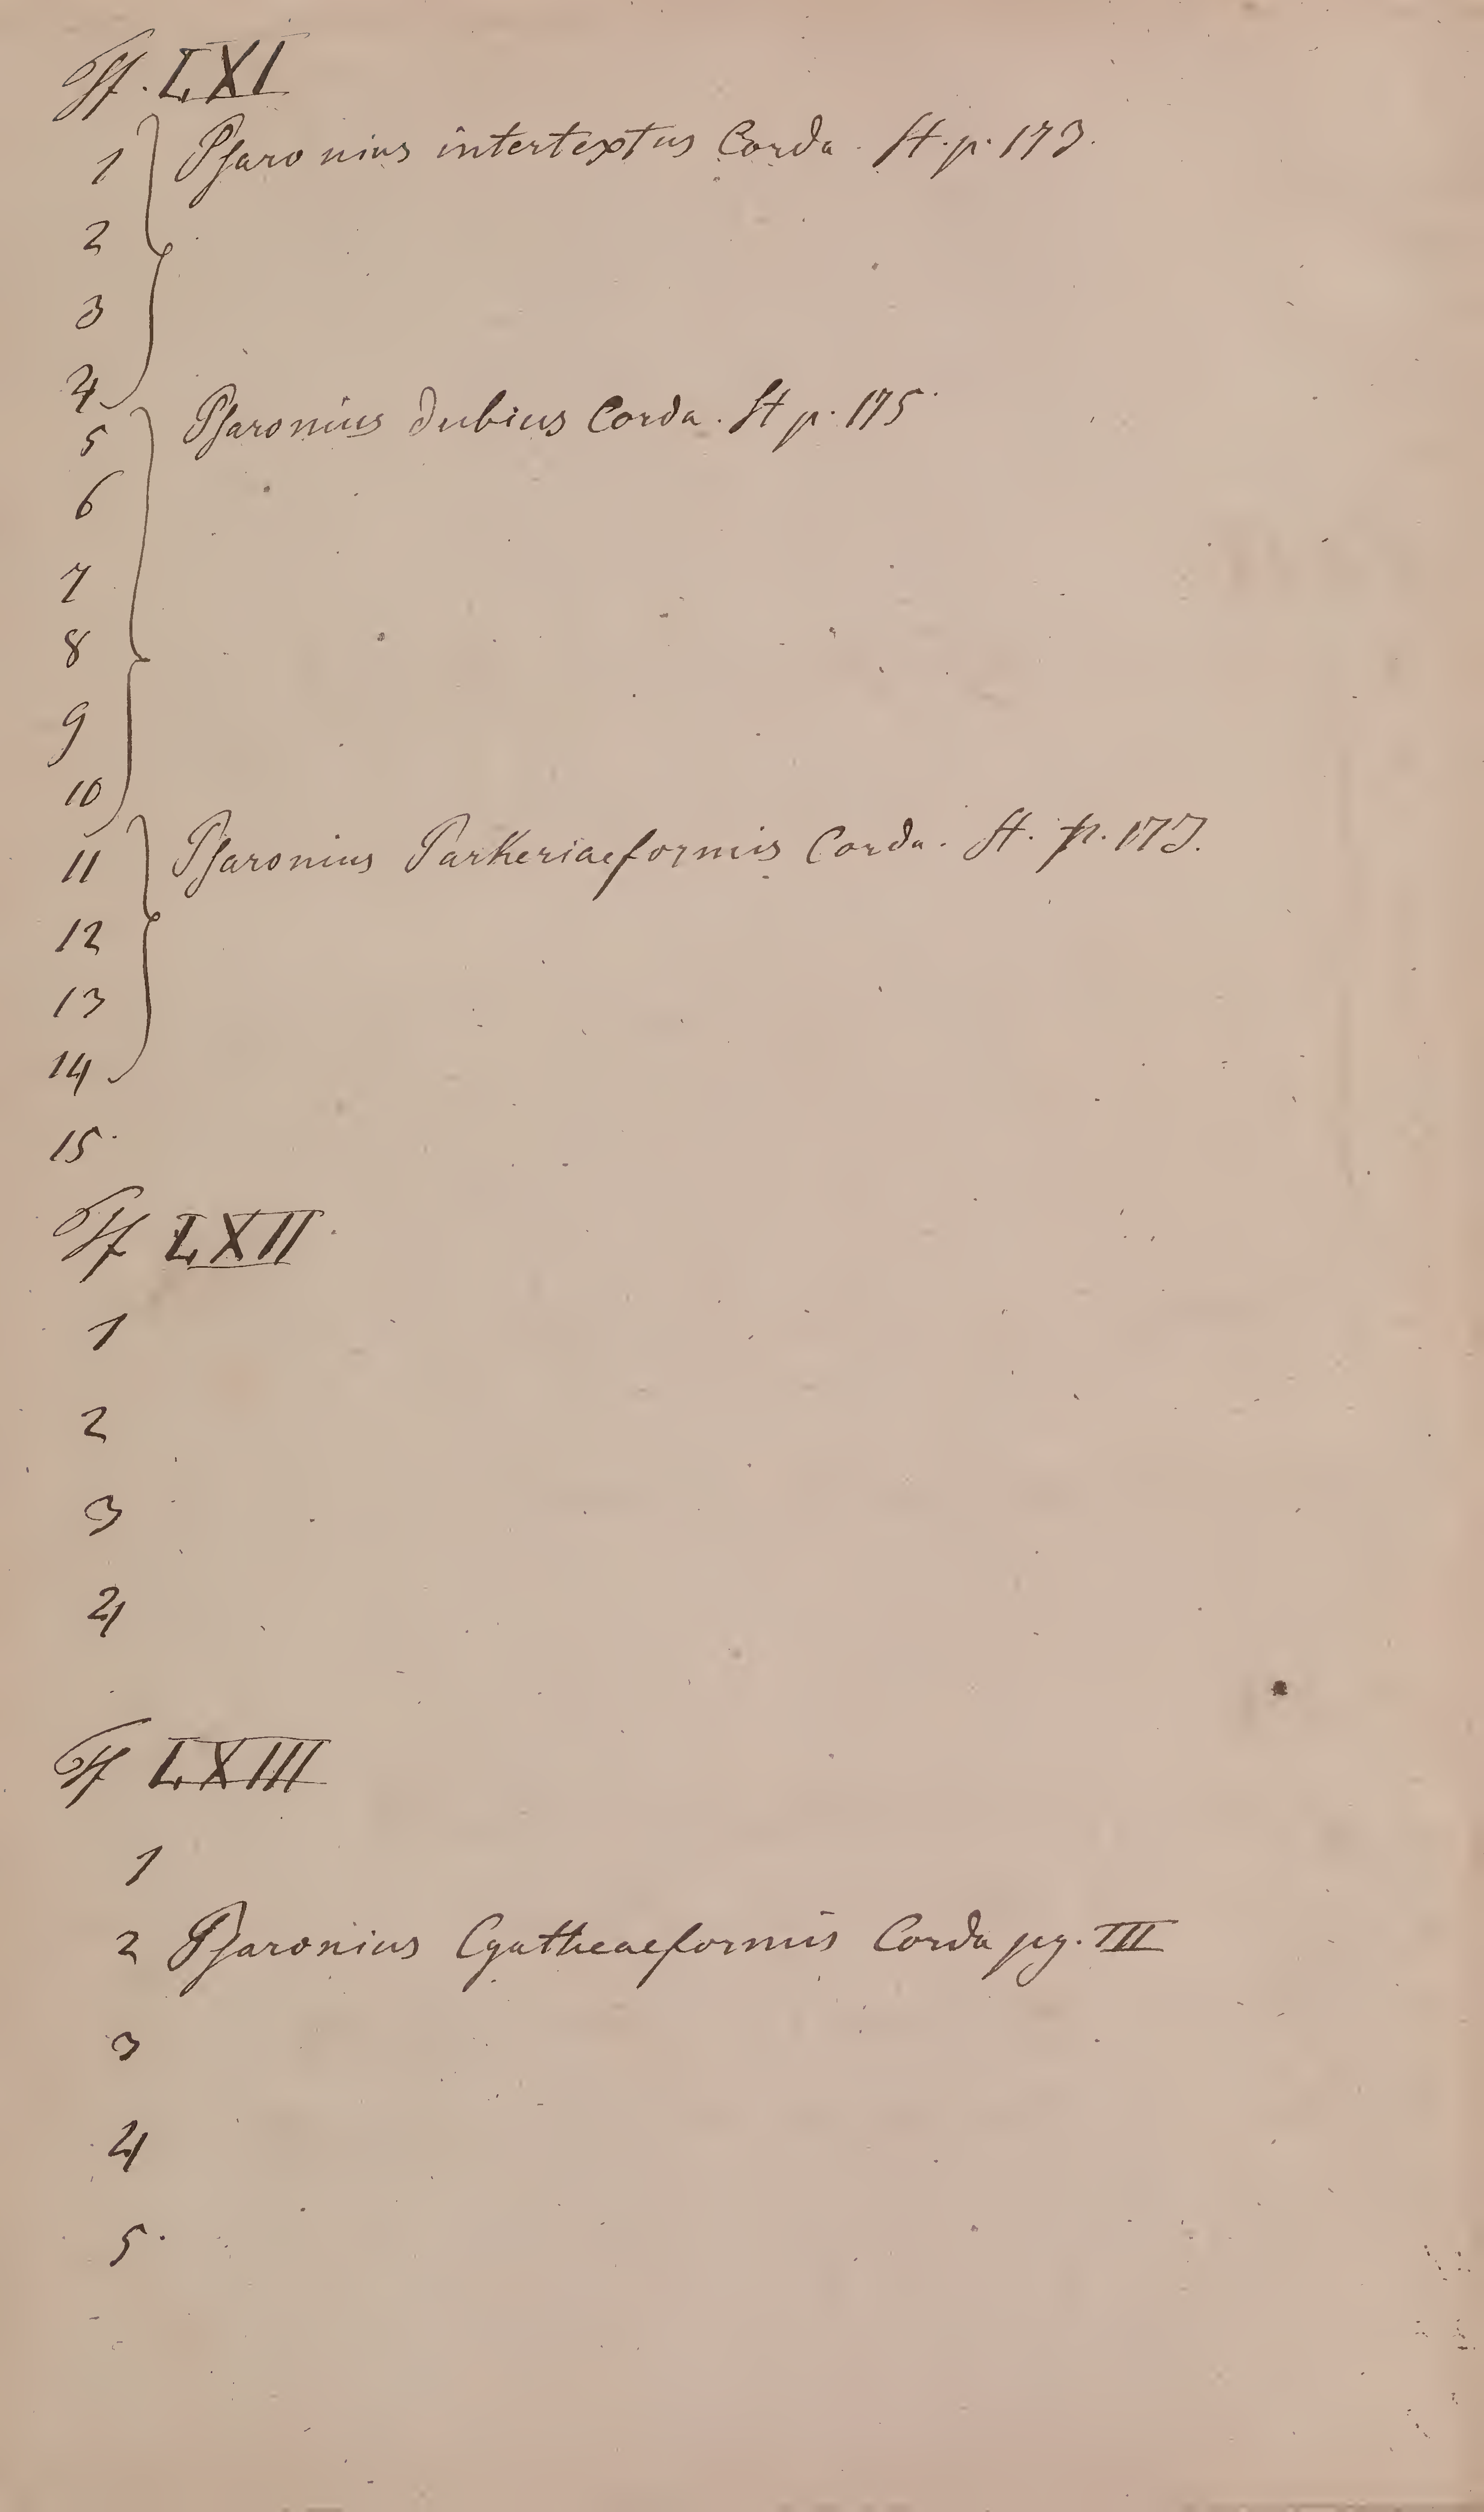 Tf. LXI
1 Psaronius intertextus Corda. St. p. 173.
2
3
4
5 Psaronius dubius Corda. St p. 175
6
7
8
9
10
11 Psaronius Parkeriaeformis Corda. St. p. 173.
12
13
14
15
Tf LXII
1
2
3
4
Tf LXIII
1
2 Psaronius Cyatheaeformis Corda pg. III
3
4
5